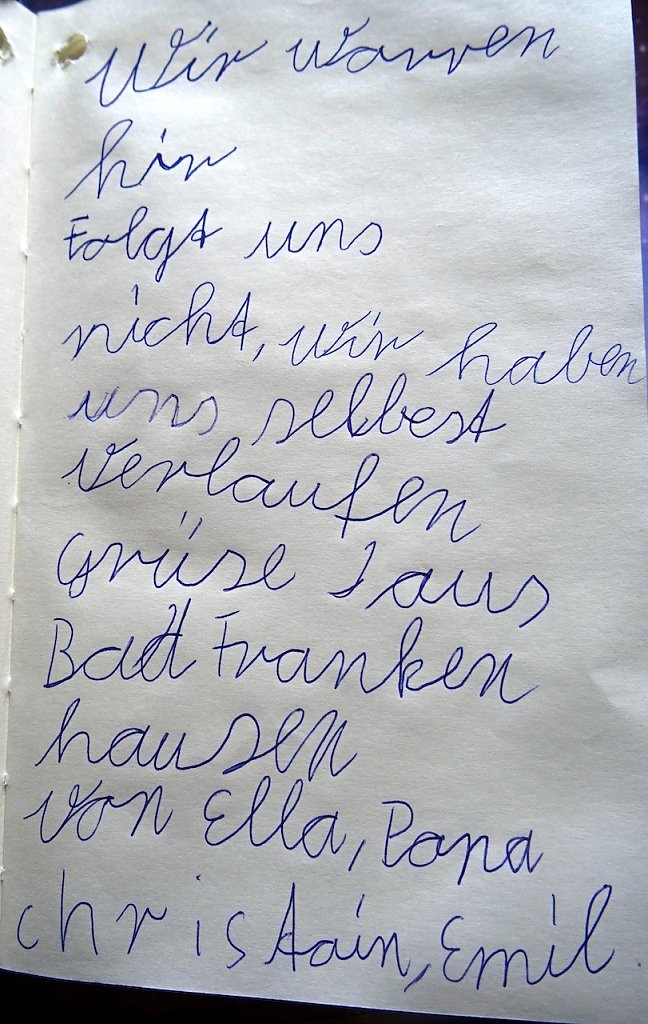 Wir warren
hir
Folgt uns
nicht, wir haben
uns selbbest
verlaufen
Grüse aus
Badt Franken
hausen
von Ella, Papa
christain, Emil.